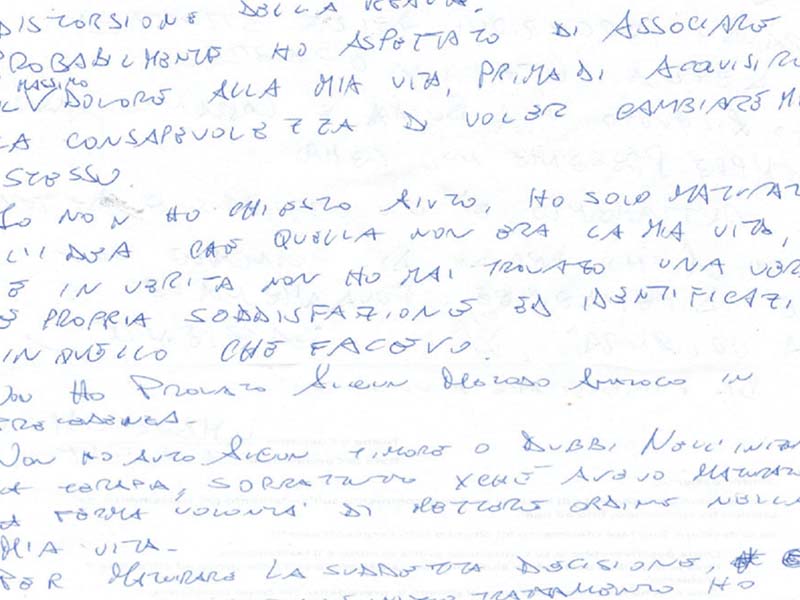 DISTORSIONE DELLA REALTA'.
PROBABILMENTE HO ASPETTATO DI ASSOCIARE
IL MASSIMO DOLORE ALLA MIA VITA, PRIMA DI ACQUISIRE
LA CONSAPEVOLEZZA DI VOLER CAMBIARE ME
STESSO.
IO NON HO CHIESTO AIUTO, HO SOLO MATURAT
L'IDEA CHE QUELLA NON ERA LA MIA VITA,
E IN VERITA NON HO MAI TROVATO UNA VER
E PROPRIA SODDISFAZIONE ED IDENTIFICAZI
IN QUELLO CHE FACEVO.
NON HO PROVATO ALCUN METODO ANALOGO IN
PRECEDENZA.
NON HO AVUTO ALCUN TIMORE O DUBBI NELL'INIZ
LA TERAPIA, SOPRATTUTTO XCHÉ AVEVO MATURAT
LA FERMA VOLONTA' DI METTERE ORDINE NELLA
MIA VITA.
PER MATURARE LA SUDDETTA DECISIONE,
TRATTAMENTO HO